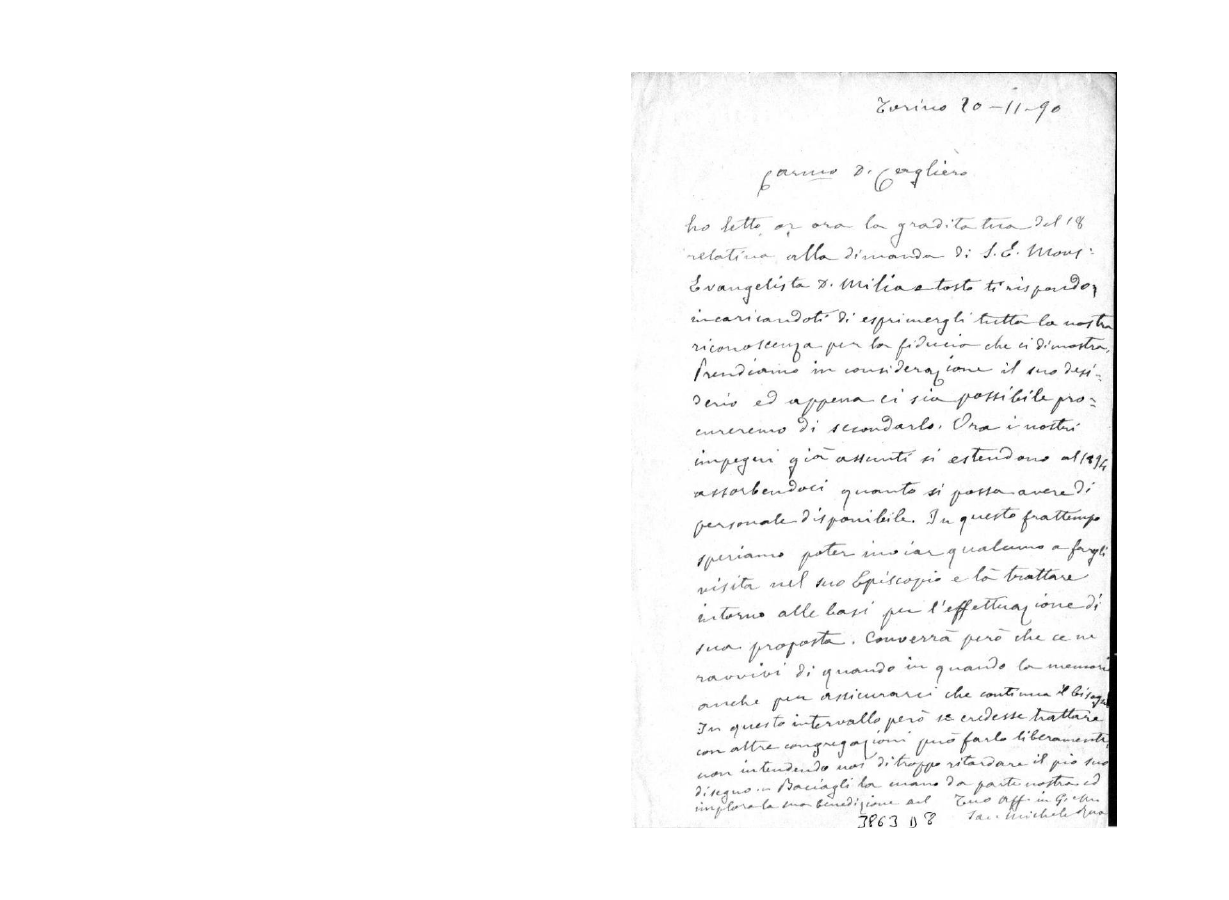 Torino 20-11-90
Carmo D. Cagliero
ho letto or ora la gradita tua del 18
relativa alla dimanda di S. E. Mons:
Evangelista D. Milia e tosto ti rispondo,
incaricandoti di esprimergli tutta la nostra
riconoscenza per la fiducia che ci dimostra.
Prendiamo in considerazione il suo desi=
derio ed appena ci sia possibile pro=
cureremo di secondarlo. Ora i nostri
impegni già assunti si estendono al 1894
assorbendoci quanto si possa avere di
personale disponibile. In questo frattempo
speriamo poter inviar qualcuno a fargli
visita nel suo Episcopio e là trattare
intorno alle basi per l'effettuazione di
sua proposta. Converrà però che ce ne
ravvivi di quando in quando la memoria
anche per assicurarci che continua il bisogno
In questo intervallo però se credesse trattare
con altre congregazioni può farlo liberamente,
non intendendo noi di troppo ritardare il pio suo
disegno - Baciagli la mano da parte nostra ed
implora la sua benedizione sul Tuo aff. in G. e M.
Sac. Michele Rua
3863 D 8